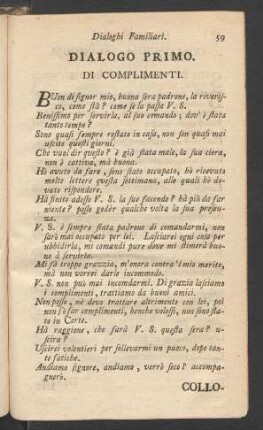 Dialoghi Familiari. 59
DIALOGO PRIMO.
DI COMPLIMENTI.
BUon dì signor mio, buona sera padrone, la riveris-
co, come stà? come se la passa V. S.
Benissimo per servirla, al suo comando; dov' è stata
tanto tempo?
Sono quasi sempre restato in casa, non son quasi mai
uscito questi giorni.
Che vuol dir questo? è già stata male, la sua ciera,
non è cattiva, mà buona.
Hò avuto da fare, sono stato occupato, hò ricevuto
molte lettere questa settimana, alle quali hò do-
vuto rispondere.
Hà finito adesso V. S. le sue facende? hà più da far
niente? posso goder qualche volta la sua presen-
za.
V. S. è sempre stata padrone di comandarmi, non
sarò mai occupato per lei. Lasciarei ogni cosa per
ubbidirla, mi comandi pure dove mi stimerà buo-
no à servirla.
Mi fà troppo grazzia, m'onora contra'l mio merito,
mà non vorrei darle incommodo.
V. S. non può mai incomodarmi. Di grazia lasciamo
i complimenti, trattiamo da buoni amici.
Non posso, nè devo trattare altrimente con lei, poi
non sò far complimenti, benche volessi, non sono sta-
to in Corte.
Hà raggione, che farà V. S. questa sera? u-
scira?
Uscirei volentieri per sollevarmi un puoco, dopo tan-
te fatiche.
Andiamo signore, andiamo, verrò seco? accompa-
gnerò.
COLLO-